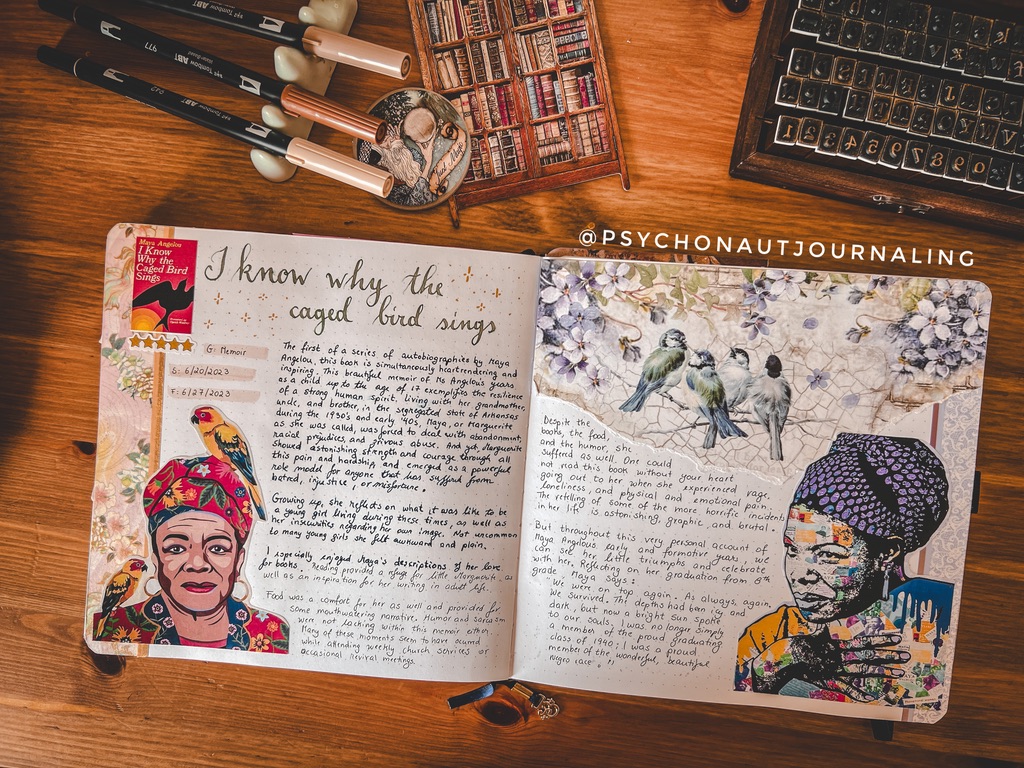 977 Tombow ABT
942 Tombow ABT
1 2 3 4 5 6 7 8 9 0
@PSYCHONAUTJOURNALING
Maya Angelou
I Know
Why the
Caged Bird
Sings
I know why the
caged bird sings
G: Memoir
S: 6/20/2023
F: 6/27/2023
The first of a series of autobiographies by Maya
Angelou, this book is simultaneously heartrendering and
inspiring. This beautiful memoir of Ms Angelou's years
as a child up to the age of 17 exemplifies the resilience
of a strong human spirit, living with her grandmother,
uncle, and brother, in the segregated state of Arkansas
during the 1930's and early '40s, Maya, or Marguerite
as she was called, was forced to deal with abandonment,
racial prejudices, and grivous abuse. And yet, Marguerite
showed astonishing strength and courage through all
this pain and hardship, and emerged as a powerful
role model for anyone that has suffered from
hatred, injustice, or misfortune.
Growing up, she reflects on what it was like to be
a young girl living during these times, as well as
her insecurities regarding her own image. Not uncommon
to many young girls she felt awkward and plain.
I especially enjoyed Maya's descriptions of her love
for books. Reading provided a refuge for little Marguerite, as
well as an inspiration for her writing in adult life.
Food was a comfort for her as well and provided for
some mouthwatering narrative. Humor and sarcasm
were not lacking within this memoir either.
Many of these moments seem to have occured
while attending weekly church services or
occasional revival meetings.
Despite the
books, the food,
and the humor, she
suffered as well. One could
not read this book without your heart
going out to her when she experienced rage,
loneliness, and physical and emotional pain.
The retelling of some of the more horrific incidents
in her life is astonishing, graphic, and brutal.
But throughout this very personal account of
Maya Angelous early and formative years, we
can see her little triumphs and celebrate
with her. Reflecting on her graduation from 8th
grade, Maya says:
"We were on top again. As always, again,
We survived. The depths had been icy and
dark, but now a bright sun spoke
to our souls. I was no longer simply
a member of the proud graduating
class of 1940; I was a proud
member of the wonderful, beautiful
Negro race".